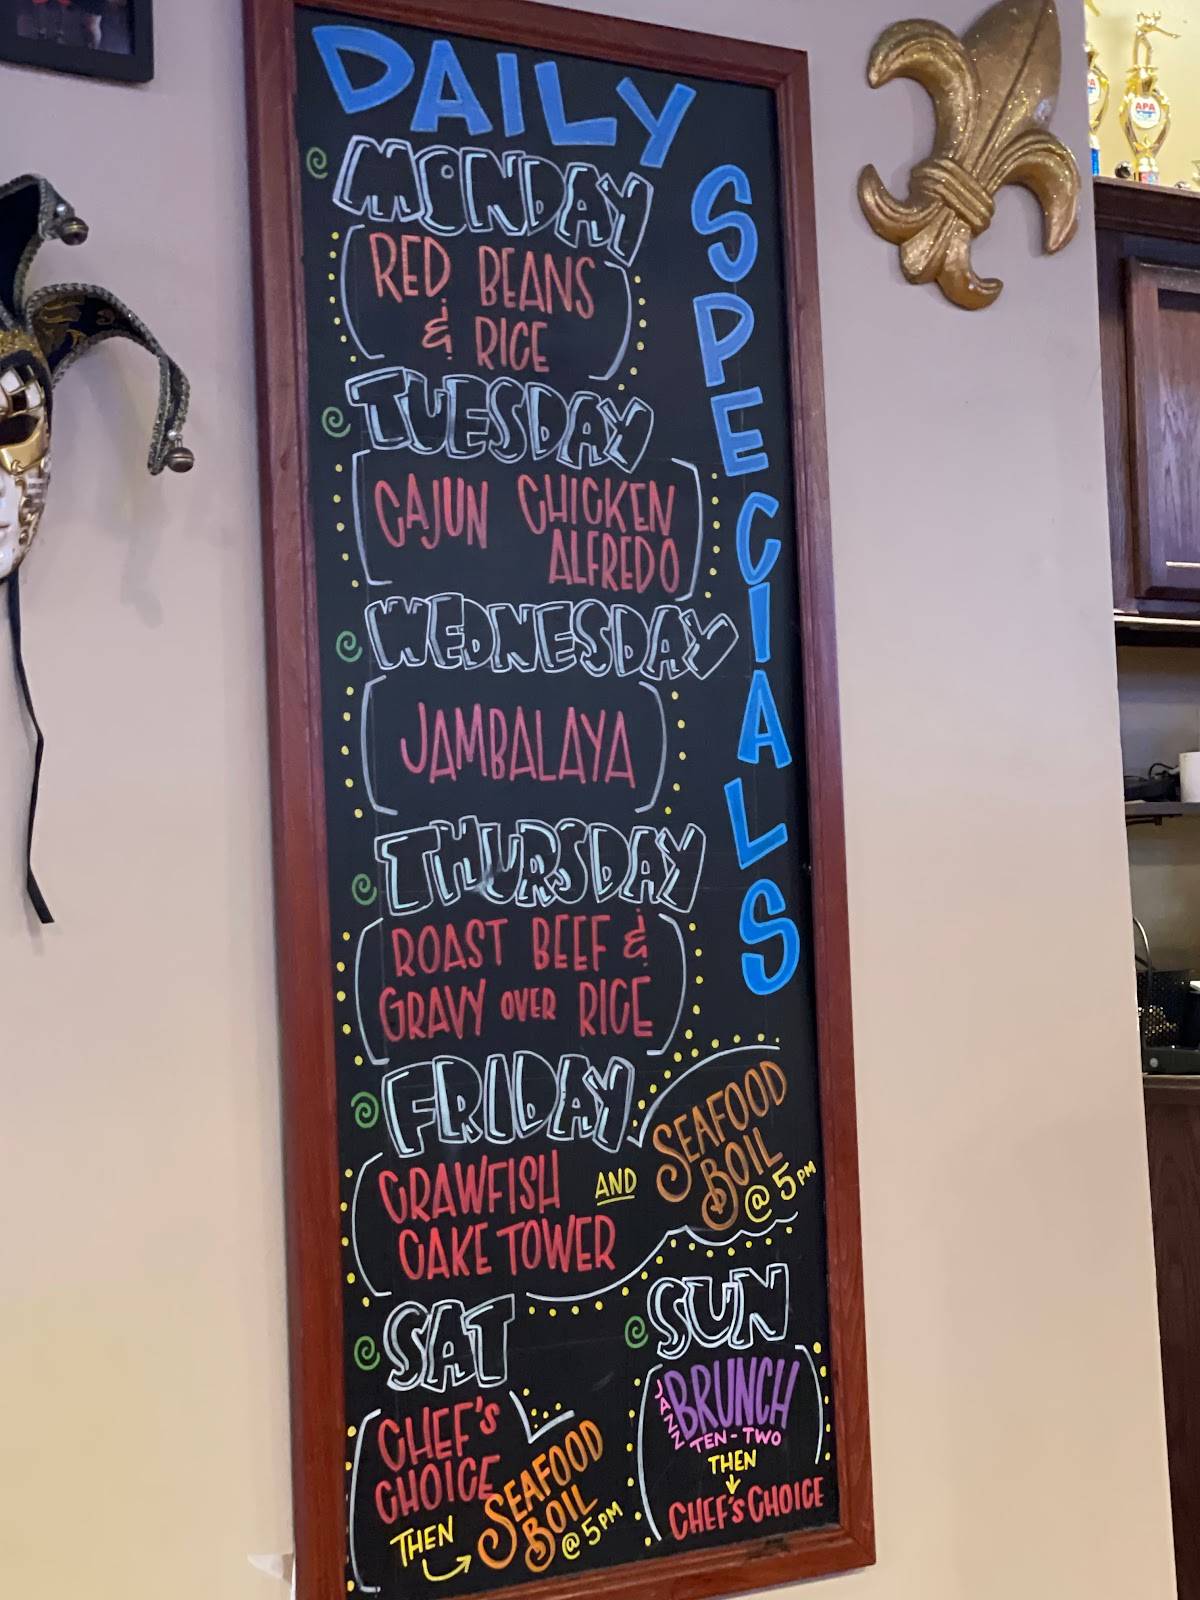 DAILY
SPECIALS
MONDAY
RED BEANS
& RICE
TUESDAY
CAJUN CHICKEN
ALFREDO
WEDNESDAY
JAMBALAYA
THURSDAY
ROAST BEEF &
GRAVY OVER RICE
FRIDAY
CRAWFISH
CAKE TOWER
AND
SEAFOOD
BOIL
@ 5PM
SAT
CHEF'S
CHOICE
THEN
SEAFOOD
BOIL
@ 5PM
SUN
JAZZ
BRUNCH
TEN-TWO
THEN
CHEF'S CHOICE
APA